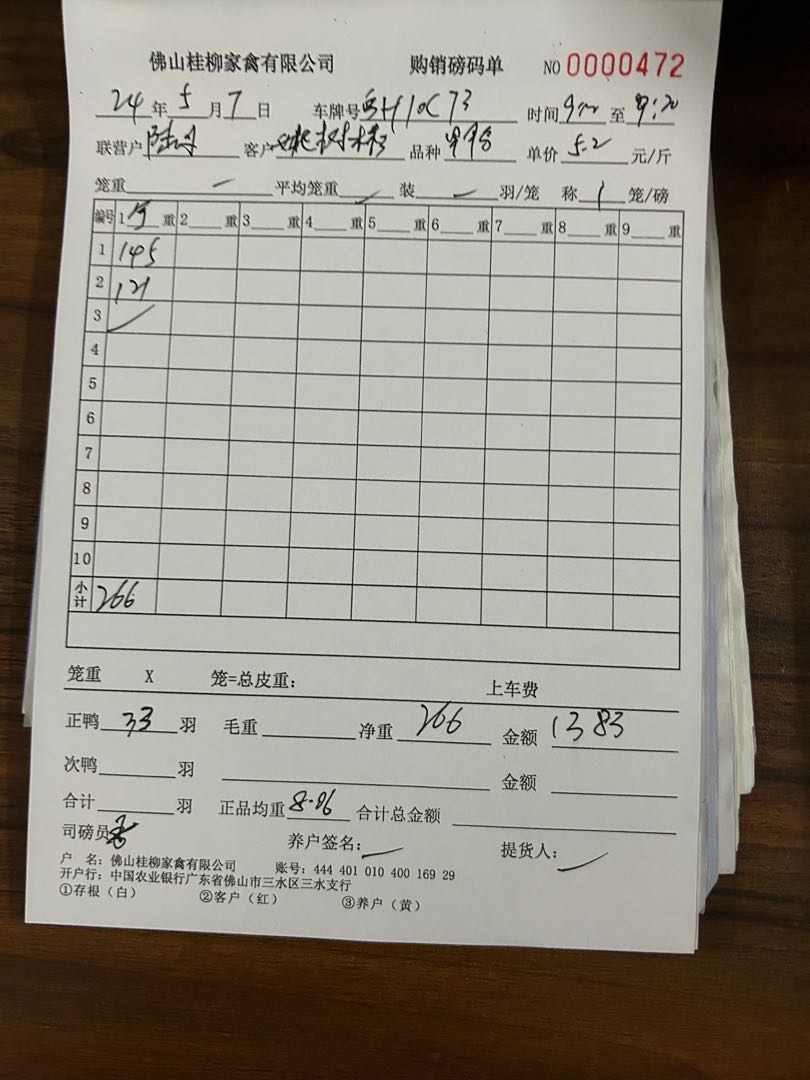 佛山桂柳家禽有限公司 购销磅码单 NO 0000472
24年5月7日 车牌号 H10C73 时间 至 9:20
联营户 客户 品种 单价 5.2 元/斤
笼重 一 平均笼重 装 羽/笼 称 1 笼/磅
编号 1 重 2 重 3 重 4 重 5 重 6 重 7 重 8 重 9 重
1 145
2 121
3
4
5
6
7
8
9
10
小计 266
笼重 X 笼=总皮重: 上车费
正鸭 33 羽 毛重 净重 266 金额 1383
次鸭 羽 金额
合计 羽 正品均重 8.06 合计总金额
司磅员 养户签名: 提货人:
户 名: 佛山桂柳家禽有限公司 账号: 444 401 010 400 169 29
开户行: 中国农业银行广东省佛山市三水区三水支行
①存根(白) ②客户(红) ③养户(黄)